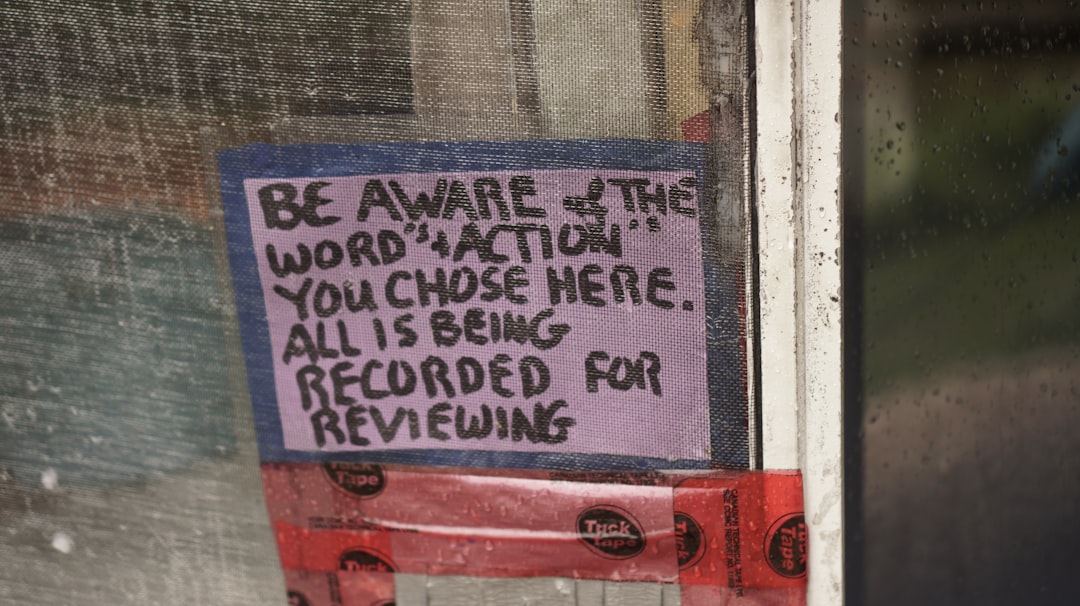 BE AWARE of THE
WORD "+ACTION"
YOU CHOSE HERE.
ALL IS BEING
RECORDED FOR
REVIEWING
Tuck
Tape
Tuck
Tape
Tuck
Tuck
Tape
Tuck